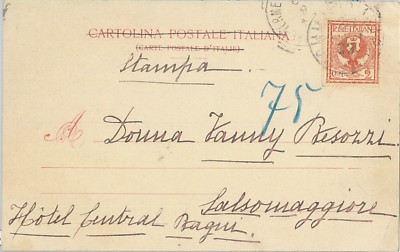 CARTOLINA POSTALE ITALIANA
(CARTE POSTALE D'ITALIE)
POSTE ITALIANE
Stampa
75
A Donna Fanny Besozzi
Salsomaggiore
Hôtel Central Bagni